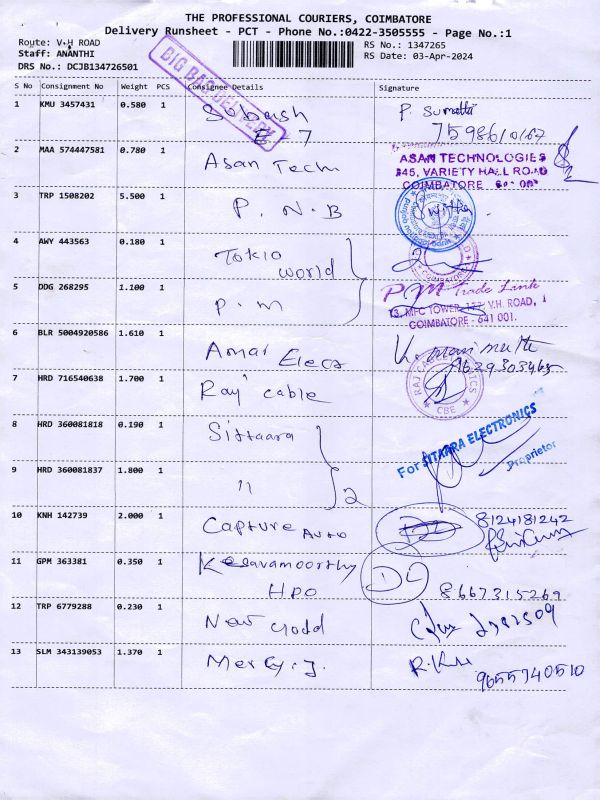 THE PROFESSIONAL COURIERS, COIMBATORE
Delivery Runsheet - PCT - Phone No.:0422-3505555 - Page No.:1
Route: V.H ROAD
Staff: ANANTHI
DRS No.: DCJB134726501
RS No.: 1347265
RS Date: 03-Apr-2024
BIG BAG DELIVERY
S No Consignment No Weight PCS Consignee Details Signature
1 KMU 3457431 0.580 1 Subash P. Sumathi
7 7598610167
2 MAA 574447581 0.780 1 Asan Tech
ASAN TECHNOLOGIES
345, VARIETY HALL ROAD
COIMBATORE
3 TRP 1508202 5.500 1 P.N.B
4 AWY 443563 0.180 1 Tokio world
5 DDG 268295 1.100 1 P.M
PM Trade Link
13, MFC TOWER, V.H. ROAD,
COIMBATORE - 641 001.
6 BLR 5004920586 1.610 1 Amar Elecs
7 HRD 716540638 1.700 1 Raj cable
9629303465
CBE
8 HRD 360081818 0.190 1 Sittaara
For SITARRA ELECTRONICS
Proprietor
9 HRD 360081837 1.800 1 " 2
10 KNH 142739 2.000 1 Capture Auto 8124181242
11 GPM 363381 0.350 1 Kesavamoorthy
HPO DL 8667315269
12 TRP 6779288 0.230 1 New
13 SLM 343139053 1.370 1 Mercy.J. 9655740510